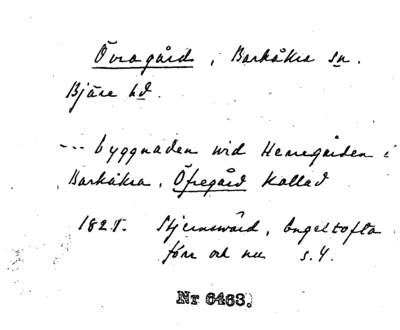 Övragård, Barkåkra sn.
Bjäre hd.
--- byggnaden wid Herregården i
Barkåkra, Öfregård kallad
1825. Stjernswärd, Engeltofta
förr och nu s. 4.
Nr 6463.